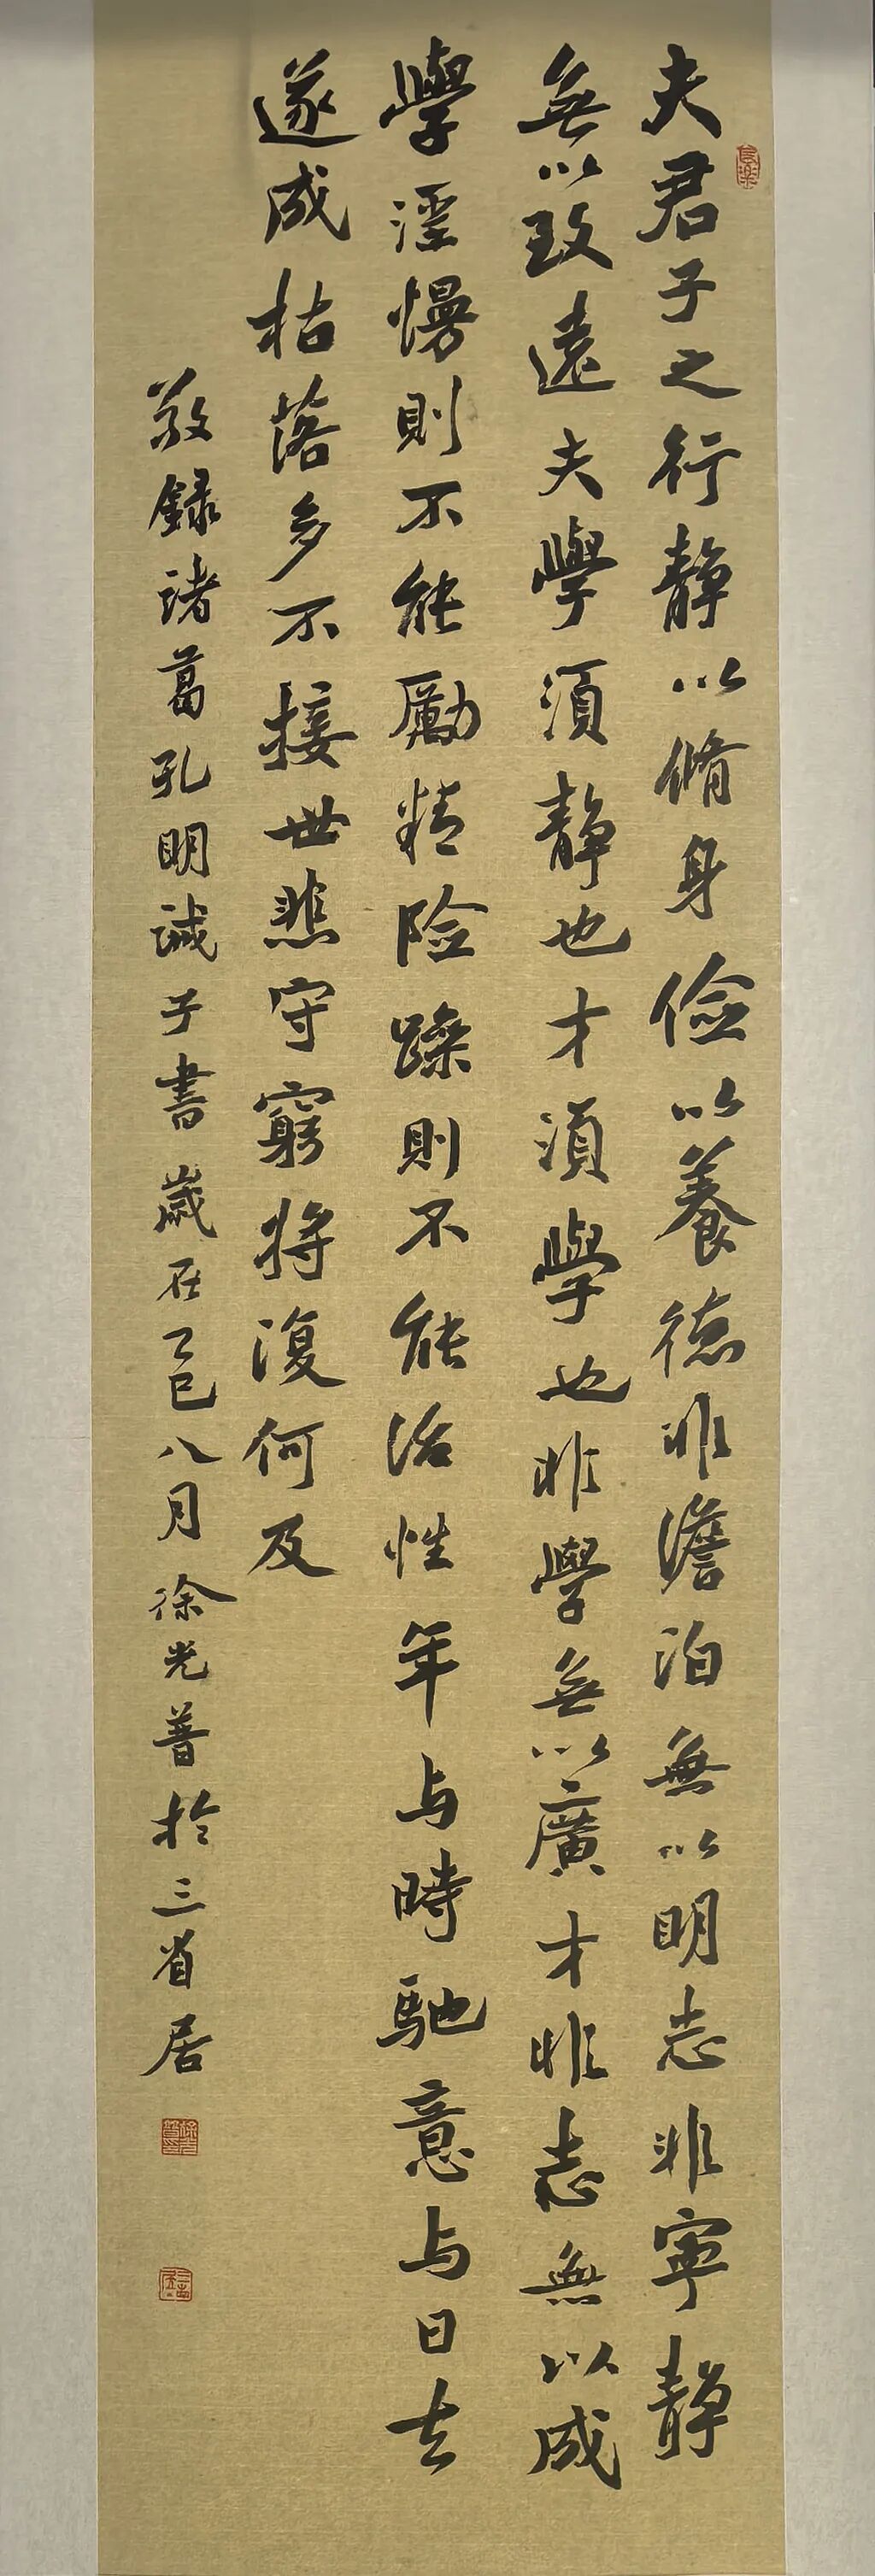 夫君子之行静以脩身儉以養德非澹泊無以明志非寧静
無以致遠夫學須静也才須學也非學無以廣才非志無以成
學淫慢則不能勵精險躁則不能治性年与時馳意与日去
遂成枯落多不接世悲守窮將復何及
敬録諸葛孔明誡子書歲在乙巳八月徐光普於三省居